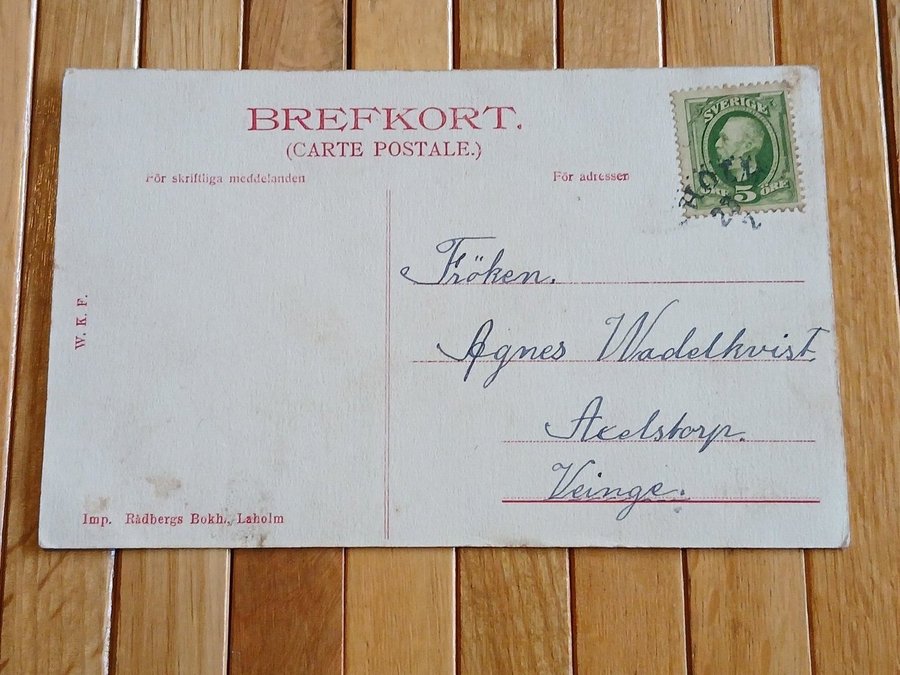 BREFKORT.
(CARTE POSTALE.)
För skriftliga meddelanden
För adressen
SVERIGE
ÖRE 5 ÖRE
23
2
Fröken.
Agnes Wadelkvist
Axelstorp.
Veinge.
W. K. F.
Imp. Rådbergs Bokh., Laholm